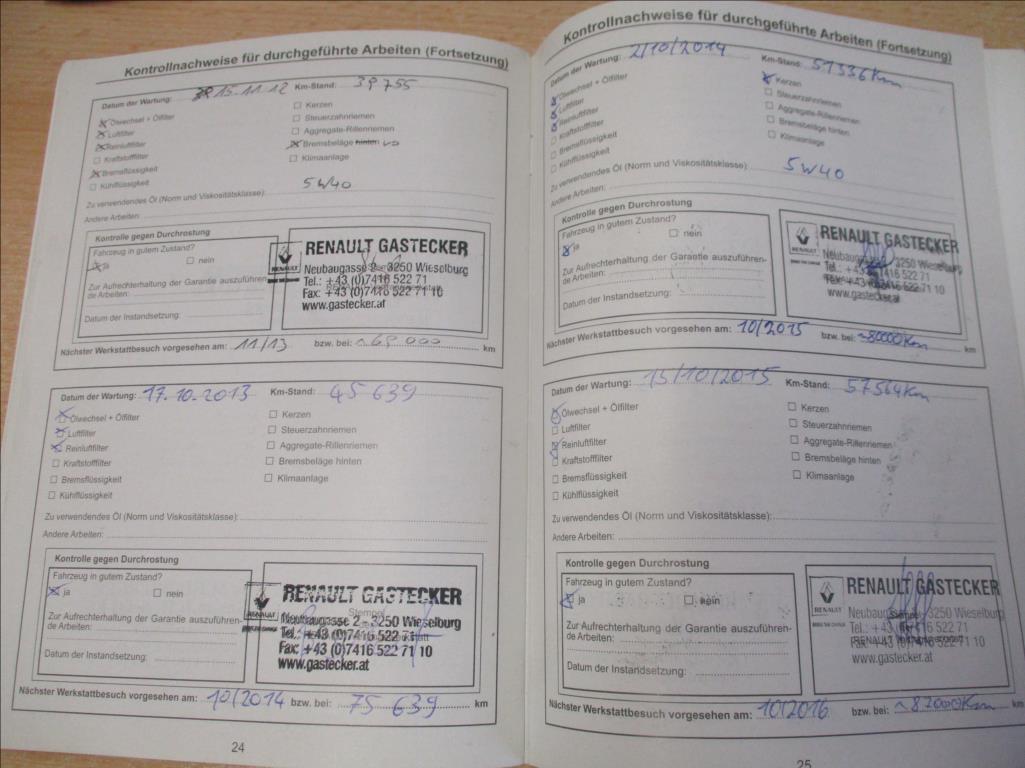 Kontrollnachweise für durchgeführte Arbeiten (Fortsetzung)
Datum der Wartung: 15.11.12 Km-Stand: 39755
Ölwechsel + Ölfilter
Luftfilter
Reinluftfilter
Kraftstofffilter
Bremsflüssigkeit
Kühlflüssigkeit
Kerzen
Steuerzahnriemen
Aggregate-Rillenriemen
Bremsbeläge hinten
Klimaanlage
Zu verwendendes Öl (Norm und Viskositätsklasse): 5W40
Andere Arbeiten:
Kontrolle gegen Durchrostung
Fahrzeug in gutem Zustand?
ja nein
Zur Aufrechterhaltung der Garantie auszuführen-
de Arbeiten:
Datum der Instandsetzung:
RENAULT GASTECKER
Neubaugasse 2 - 3250 Wieselburg
Tel.: +43 (0)7416 522 71
Fax: +43 (0)7416 522 71 10
www.gastecker.at
Nächster Werkstattbesuch vorgesehen am: 11/13 bzw. bei: ~69000 km
Datum der Wartung: 17.10.2013 Km-Stand: 45 639
Ölwechsel + Ölfilter
Luftfilter
Reinluftfilter
Kraftstofffilter
Bremsflüssigkeit
Kühlflüssigkeit
Kerzen
Steuerzahnriemen
Aggregate-Rillenriemen
Bremsbeläge hinten
Klimaanlage
Zu verwendendes Öl (Norm und Viskositätsklasse):
Andere Arbeiten:
Kontrolle gegen Durchrostung
Fahrzeug in gutem Zustand?
ja nein
Zur Aufrechterhaltung der Garantie auszuführen-
de Arbeiten:
Datum der Instandsetzung:
RENAULT GASTECKER
Stempel
Neubaugasse 2 - 3250 Wieselburg
Tel.: +43 (0)7416 522 71
Fax: +43 (0)7416 522 71 10
www.gastecker.at
Nächster Werkstattbesuch vorgesehen am: 10/2014 bzw. bei: 75 639 km
24
Kontrollnachweise für durchgeführte Arbeiten (Fortsetzung)
Datum der Wartung: 2/10/2014 Km-Stand: 51336Km
Ölwechsel + Ölfilter
Luftfilter
Reinluftfilter
Kraftstofffilter
Bremsflüssigkeit
Kühlflüssigkeit
Kerzen
Steuerzahnriemen
Aggregate-Rillenriemen
Bremsbeläge hinten
Klimaanlage
Zu verwendendes Öl (Norm und Viskositätsklasse): 5W40
Andere Arbeiten:
Kontrolle gegen Durchrostung
Fahrzeug in gutem Zustand?
ja nein
Zur Aufrechterhaltung der Garantie auszuführen-
de Arbeiten:
Datum der Instandsetzung:
RENAULT
RENAULT GASTECKER
Neubaugasse 2 - 3250 Wieselburg
Tel.: +43 (0)7416 522 71
Fax: +43 (0)7416 522 71 10
www.gastecker.at
Nächster Werkstattbesuch vorgesehen am: 10/2015 bzw. bei: ~80000Km km
Datum der Wartung: 15/10/2015 Km-Stand: 57564Km
Ölwechsel + Ölfilter
Luftfilter
Reinluftfilter
Kraftstofffilter
Bremsflüssigkeit
Kühlflüssigkeit
Kerzen
Steuerzahnriemen
Aggregate-Rillenriemen
Bremsbeläge hinten
Klimaanlage
Zu verwendendes Öl (Norm und Viskositätsklasse):
Andere Arbeiten:
Kontrolle gegen Durchrostung
Fahrzeug in gutem Zustand?
ja nein
Zur Aufrechterhaltung der Garantie auszuführen-
de Arbeiten:
Datum der Instandsetzung:
RENAULT
RENAULT GASTECKER
Neubaugasse 2 - 3250 Wieselburg
Tel.: +43 (0)7416 522 71
Fax: +43 (0)7416 522 71 10
www.gastecker.at
Nächster Werkstattbesuch vorgesehen am: 10/2016 bzw. bei: ~87000Km km
25